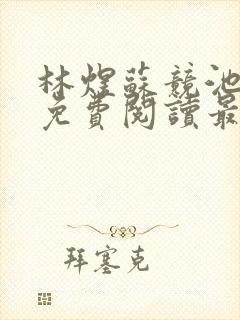 林煜蘇競池
免費閱讀最
拜塞克